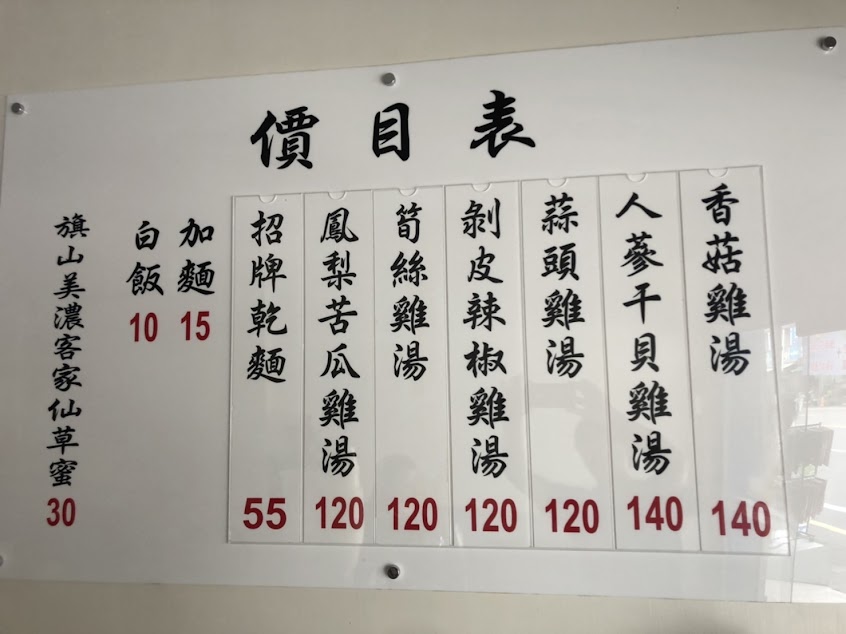 價目表
香菇雞湯 140
人蔘干貝雞湯 140
蒜頭雞湯 120
剝皮辣椒雞湯 120
筍絲雞湯 120
鳳梨苦瓜雞湯 120
招牌乾麵 55
加麵 15
白飯 10
旗山美濃客家仙草蜜 30